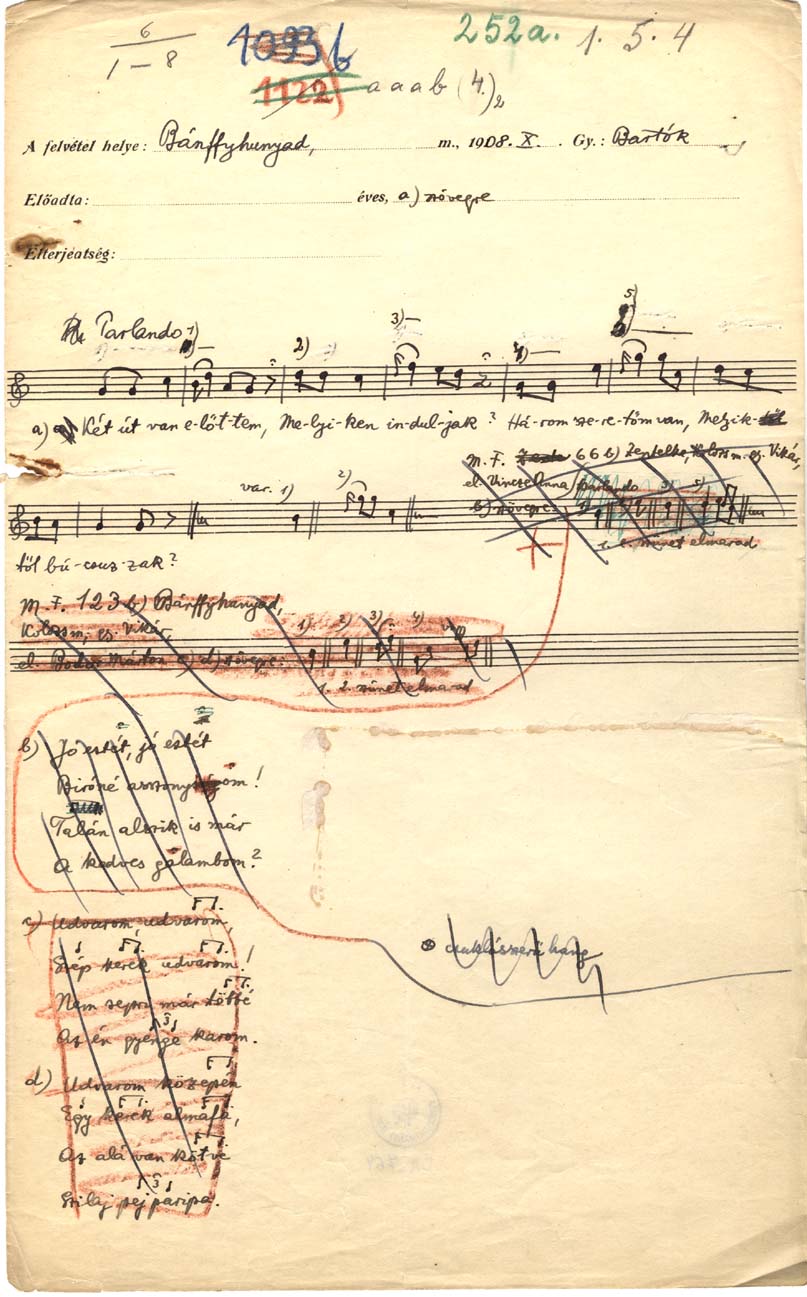 6
1–8
1093 b
252a.
1. 5. 4
1122)
a a a b (4.)2
A felvétel helye: Bánffyhunyad, m., 1908. X. Gy.: Bartók
Előadta: éves, a) szövegre
Elterjedtség:
Tarlando 1) 2) 3) 4) 5)
a) Két út van e-löt-tem, Me-lyi-ken in-dul-jak? Há-rom sze-re-tőm van, Melyik-től
M. F. 66 b) Zentelke, Kolozsm. gy. Vikár,
el. Vincze Anna) parlando
var. 1) 2)
b) szövegre 3) 5)
1. 2. szünet elmarad
től bú-csuz-zak?
M. F. 123 b) Bánffyhunyad,
Kolozsm; gy. Vikár,
el. Bodor Márton c) d) szövegre: 1) 2) 3) 4)
1. 2. szünet elmarad
b) Jó estét, jó estét
Biróné asszonyom!
Talán alszik is már
A kedves galambom?
c) Udvarom, udvarom,
Szép kerek udvarom!
Nem sepri már többé
Az én gyenge karom.
d) Udvarom közepén
Egy kerek almafa,
Az alá van kötve
Szilaj pej paripa.
csuklásszerű hang